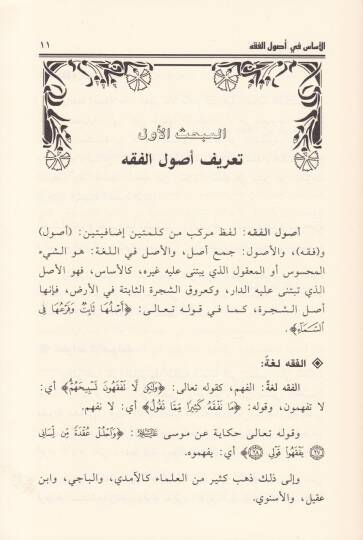 الأساس في أصول الفقه ١١
المبحث الأول
تعريف أصول الفقه
أصول الفقه: لفظ مركب من كلمتين إضافيتين: (أصول)
و(فقه)، والأصول: جمع أصل، والأصل في اللغة: هو الشيء
المحسوس أو المعقول الذي يبتنى عليه غيره، كالأساس، فهو الأصل
الذي تبتنى عليه الدار، وكعروق الشجرة الثابتة في الأرض، فإنها
أصل الشجرة، كما في قوله تعالى: ﴿أَصْلُهَا ثَابِتٌ وَفَرْعُهَا فِي
السَّمَاءِ﴾.
◈ الفقه لغة:
الفقه لغةً: الفهم، كقوله تعالى: ﴿وَلَكِن لَّا تَفْقَهُونَ تَسْبِيحَهُمْ﴾ أي:
لا تفهمون، وقوله: ﴿مَا نَفْقَهُ كَثِيرًا مِّمَّا تَقُولُ﴾ أي: لا نفهم.
وقوله تعالى حكاية عن موسى ﷺ: ﴿وَاحْلُلْ عُقْدَةً مِّن لِّسَانِي
﴿٢٧﴾ يَفْقَهُوا قَوْلِي ﴿٢٨﴾﴾ أي: يفهموه.
وإلى ذلك ذهب كثير من العلماء كالآمدي، والباجي، وابن
عقيل، والأسنوي.